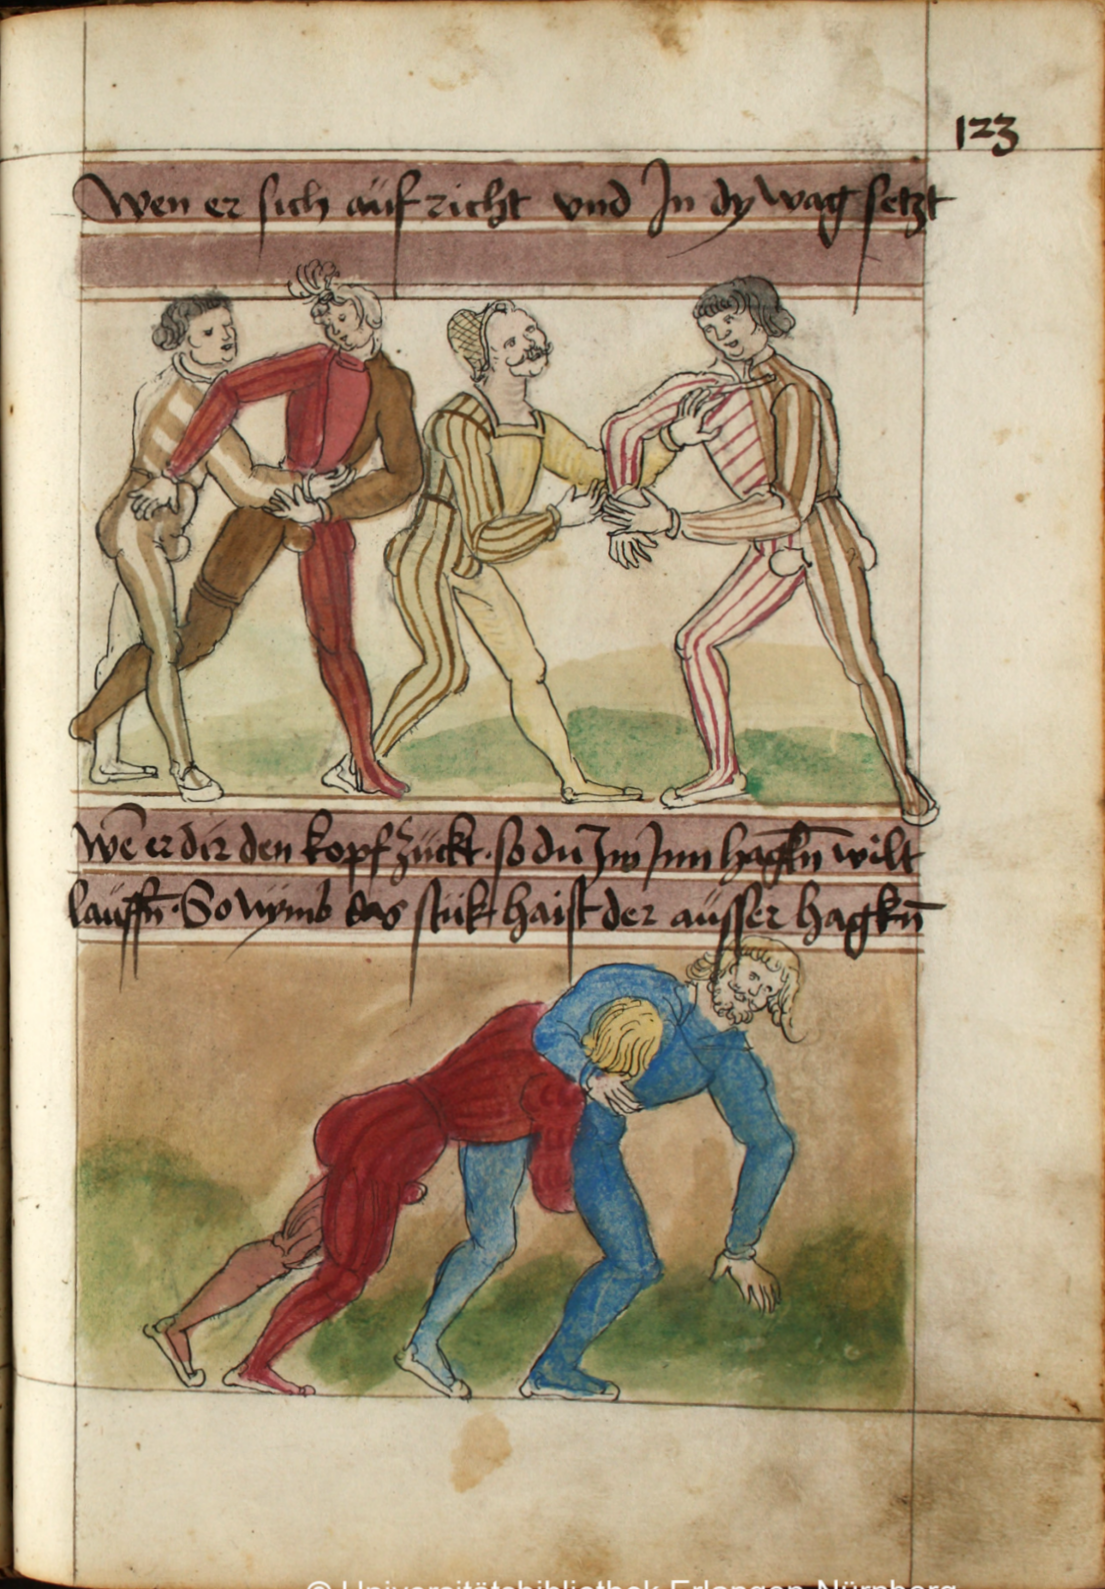 123
Wen er sich aüf richt vnd In dy wag setzt
Wē er dir den kopf zückt · so dü Im Inn hagkn̄ wilt
laüffn̄ · So nymb das stük haist der aüsser hagkn̄
© Universitätsbibliothek Erlangen-Nürnberg